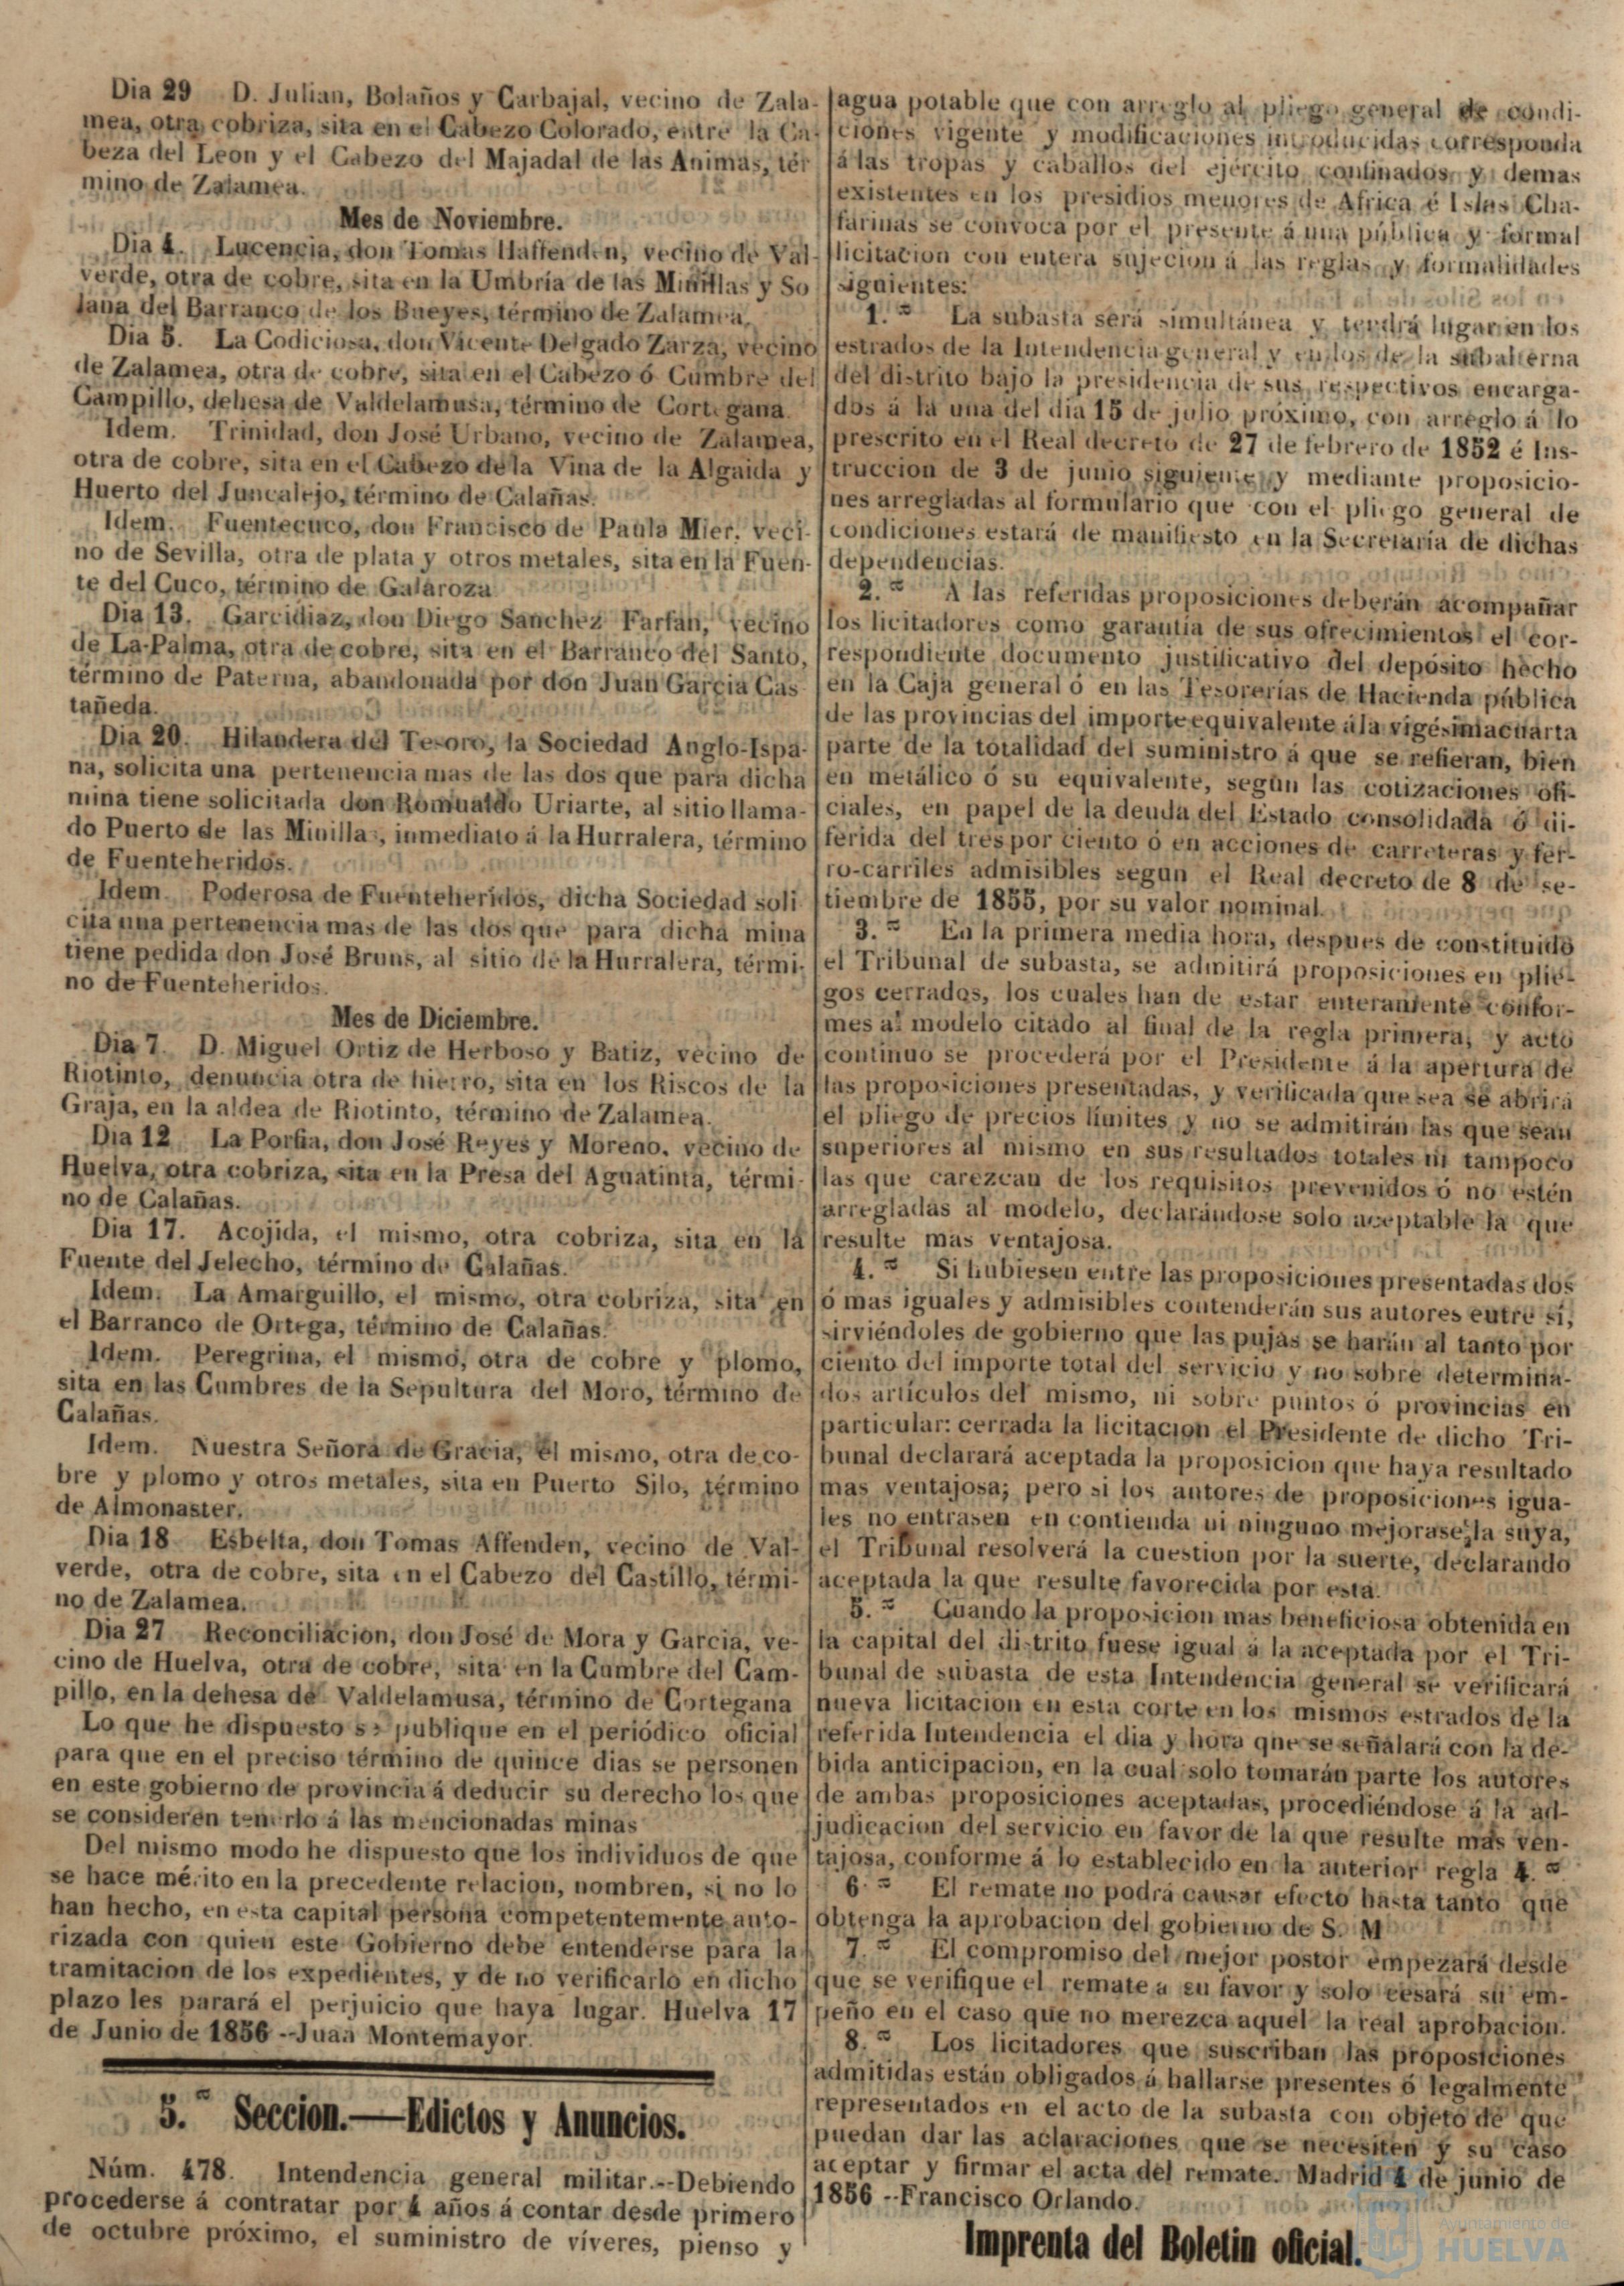 Dia 29 D. Julian, Bolaños y Carbajal, vecino de Zala-
mea, otra cobriza, sita en el Cabezo Colorado, entre la Ca-
beza del Leon y el Cabezo del Majadal de las Animas, tér
mino de Zalamea.
Mes de Noviembre.
Dia 4. Lucencia, don Tomas Haffenden, vecino de Val-
verde, otra de cobre, sita en la Umbría de las Minillas y So
lana del Barranco de los Bueyes, término de Zalamea.
Dia 5. La Codiciosa, don Vicente Delgado Zarza, vecino
de Zalamea, otra de cobre, sita en el Cabezo ó Cumbre del
Campillo, dehesa de Valdelamusa, término de Cortegana.
Idem. Trinidad, don José Urbano, vecino de Zalamea,
otra de cobre, sita en el Cabezo de la Vina de la Algaida y
Huerto del Juncalejo, término de Calañas.
Idem. Fuentecuco, don Francisco de Paula Mier, veci-
no de Sevilla, otra de plata y otros metales, sita en la Fuen-
te del Cuco, término de Galaroza
Dia 13. Garcidiaz, don Diego Sanchez Farfan, vecino
de La-Palma, otra de cobre, sita en el Barranco del Santo,
término de Paterna, abandonada por don Juan Garcia Cas
tañeda.
Dia 20. Hilandera del Tesoro, la Sociedad Anglo-Ispa-
na, solicita una pertenencia mas de las dos que para dicha
mina tiene solicitada don Romualdo Uriarte, al sitio llama-
do Puerto de las Minillas, inmediato á la Hurralera, término
de Fuenteheridos.
Idem. Poderosa de Fuenteheridos, dicha Sociedad soli
cita una pertenencia mas de las dos que para dicha mina
tiene pedida don José Bruns, al sitio de la Hurralera, térmi-
no de Fuenteheridos.
Mes de Diciembre.
Dia 7. D. Miguel Ortiz de Herboso y Batiz, vecino de
Riotinto, denuncia otra de hierro, sita en los Riscos de la
Graja, en la aldea de Riotinto, término de Zalamea.
Dia 12 La Porfia, don José Reyes y Moreno, vecino de
Huelva, otra cobriza, sita en la Presa del Aguatinta, térmi-
no de Calañas.
Dia 17. Acojida, el mismo, otra cobriza, sita en la
Fuente del Jelecho, término de Calañas.
Idem. La Amarguillo, el mismo, otra cobriza, sita en
el Barranco de Ortega, término de Calañas.
Idem. Peregrina, el mismo, otra de cobre y plomo,
sita en las Cumbres de la Sepultura del Moro, término de
Calañas.
Idem. Nuestra Señora de Gracia, el mismo, otra de co-
bre y plomo y otros metales, sita en Puerto Silo, término
de Almonaster.
Dia 18 Esbelta, don Tomas Affenden, vecino de Val-
verde, otra de cobre, sita en el Cabezo del Castillo, térmi-
no de Zalamea.
Dia 27 Reconciliacion, don José de Mora y Garcia, ve-
cino de Huelva, otra de cobre, sita en la Cumbre del Cam-
pillo, en la dehesa de Valdelamusa, término de Cortegana
Lo que he dispuesto se publique en el periódico oficial
para que en el preciso término de quince dias se personen
en este gobierno de provincia á deducir su derecho los que
se consideren tenerlo á las mencionadas minas
Del mismo modo he dispuesto que los individuos de que
se hace mérito en la precedente relacion, nombren, si no lo
han hecho, en esta capital persona competentemente auto-
rizada con quien este Gobierno debe entenderse para la
tramitacion de los expedientes, y de no verificarlo en dicho
plazo les parará el perjuicio que haya lugar. Huelva 17
de Junio de 1856 --Juan Montemayor.
5.ª Seccion.—Edictos y Anuncios.
Núm. 478. Intendencia general militar.--Debiendo
procederse á contratar por 4 años á contar desde primero
de octubre próximo, el suministro de víveres, pienso y
agua potable que con arreglo al pliego general de condi-
ciones vigente y modificaciones introducidas corresponda
á las tropas y caballos del ejército, confinados y demas
existentes en los presidios menores de Africa é Islas Cha-
farinas se convoca por el presente á una pública y formal
licitacion con entera sujecion á las reglas y formalidades
siguientes:
1.ª La subasta será simultánea y tendrá lugar en los
estrados de la Intendencia general y en los de la subalterna
del distrito bajo la presidencia de sus respectivos encarga-
dos á la una del dia 15 de julio próximo, con arreglo á lo
prescrito en el Real decreto de 27 de febrero de 1852 é Ins-
truccion de 3 de junio siguiente y mediante proposicio-
nes arregladas al formulario que con el pliego general de
condiciones estará de manifiesto en la Secretaría de dichas
dependencias.
2.ª A las referidas proposiciones deberán acompañar
los licitadores como garantía de sus ofrecimientos el cor-
respondiente documento justificativo del depósito hecho
en la Caja general ó en las Tesorerías de Hacienda pública
de las provincias del importe equivalente á la vigésimacuarta
parte de la totalidad del suministro á que se refieran, bien
en metálico ó su equivalente, segun las cotizaciones ofi-
ciales, en papel de la deuda del Estado consolidada ó di-
ferida del tres por ciento ó en acciones de carreteras y fer-
ro-carriles admisibles segun el Real decreto de 8 de se-
tiembre de 1855, por su valor nominal.
3.ª En la primera media hora, despues de constituido
el Tribunal de subasta, se admitirá proposiciones en plie-
gos cerrados, los cuales han de estar enteramente confor-
mes al modelo citado al final de la regla primera, y acto
continuo se procederá por el Presidente á la apertura de
las proposiciones presentadas, y verificada que sea se abrirá
el pliego de precios límites y no se admitirán las que sean
superiores al mismo en sus resultados totales ni tampoco
las que carezcan de los requisitos prevenidos ó no estén
arregladas al modelo, declarándose solo aceptable la que
resulte mas ventajosa.
4.ª Si hubiesen entre las proposiciones presentadas dos
ó mas iguales y admisibles contenderán sus autores entre sí,
sirviéndoles de gobierno que las pujas se harán al tanto por
ciento del importe total del servicio y no sobre determina-
dos artículos del mismo, ni sobre puntos ó provincias en
particular: cerrada la licitacion el Presidente de dicho Tri-
bunal declarará aceptada la proposicion que haya resultado
mas ventajosa; pero si los autores de proposiciones igua-
les no entrasen en contienda ni ninguno mejorase la suya,
el Tribunal resolverá la cuestion por la suerte, declarando
aceptada la que resulte favorecida por esta.
5.ª Cuando la proposicion mas beneficiosa obtenida en
la capital del distrito fuese igual á la aceptada por el Tri-
bunal de subasta de esta Intendencia general se verificará
nueva licitacion en esta corte en los mismos estrados de la
referida Intendencia el dia y hora que se señalará con la de-
bida anticipacion, en la cual solo tomarán parte los autores
de ambas proposiciones aceptadas, procediéndose á la ad-
judicacion del servicio en favor de la que resulte mas ven-
tajosa, conforme á lo establecido en la anterior regla 4.ª
6.ª El remate no podrá causar efecto hasta tanto que
obtenga la aprobacion del gobierno de S. M
7.ª El compromiso del mejor postor empezará desde
que se verifique el remate á su favor y solo cesará su em-
peño en el caso que no merezca aquel la real aprobacion.
8.ª Los licitadores que suscriban las proposiciones
admitidas están obligados á hallarse presentes ó legalmente
representados en el acto de la subasta con objeto de que
puedan dar las aclaraciones que se necesiten y su caso
aceptar y firmar el acta del remate. Madrid 4 de junio de
1856 --Francisco Orlando.
Imprenta del Boletin oficial.
Ayuntamiento de
HUELVA